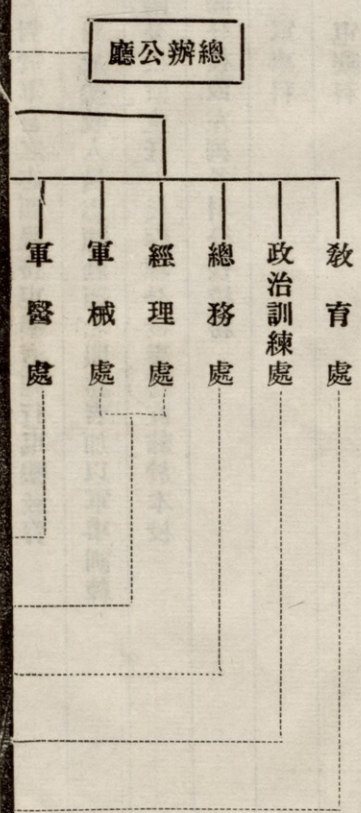 總辦公廳
教育處
政治訓練處
總務處
經理處
軍械處
軍醫處